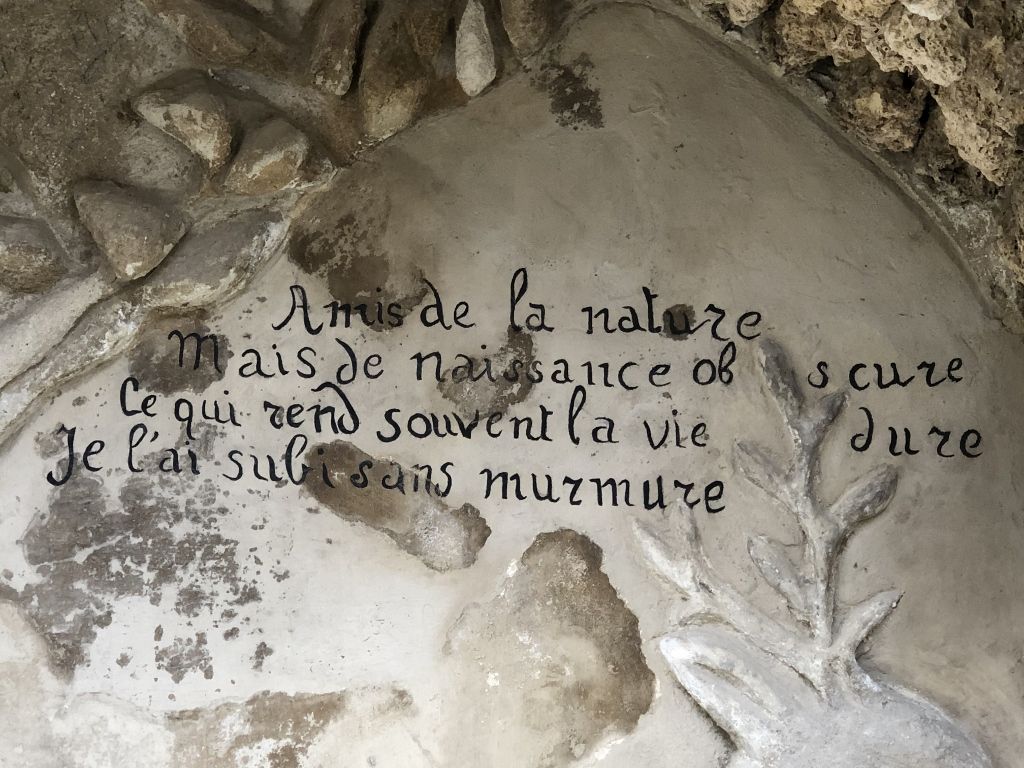 Amis de la nature
Mais de naissance obscure
Ce qui rend souvent la vie dure
Je l'ai subi sans murmure